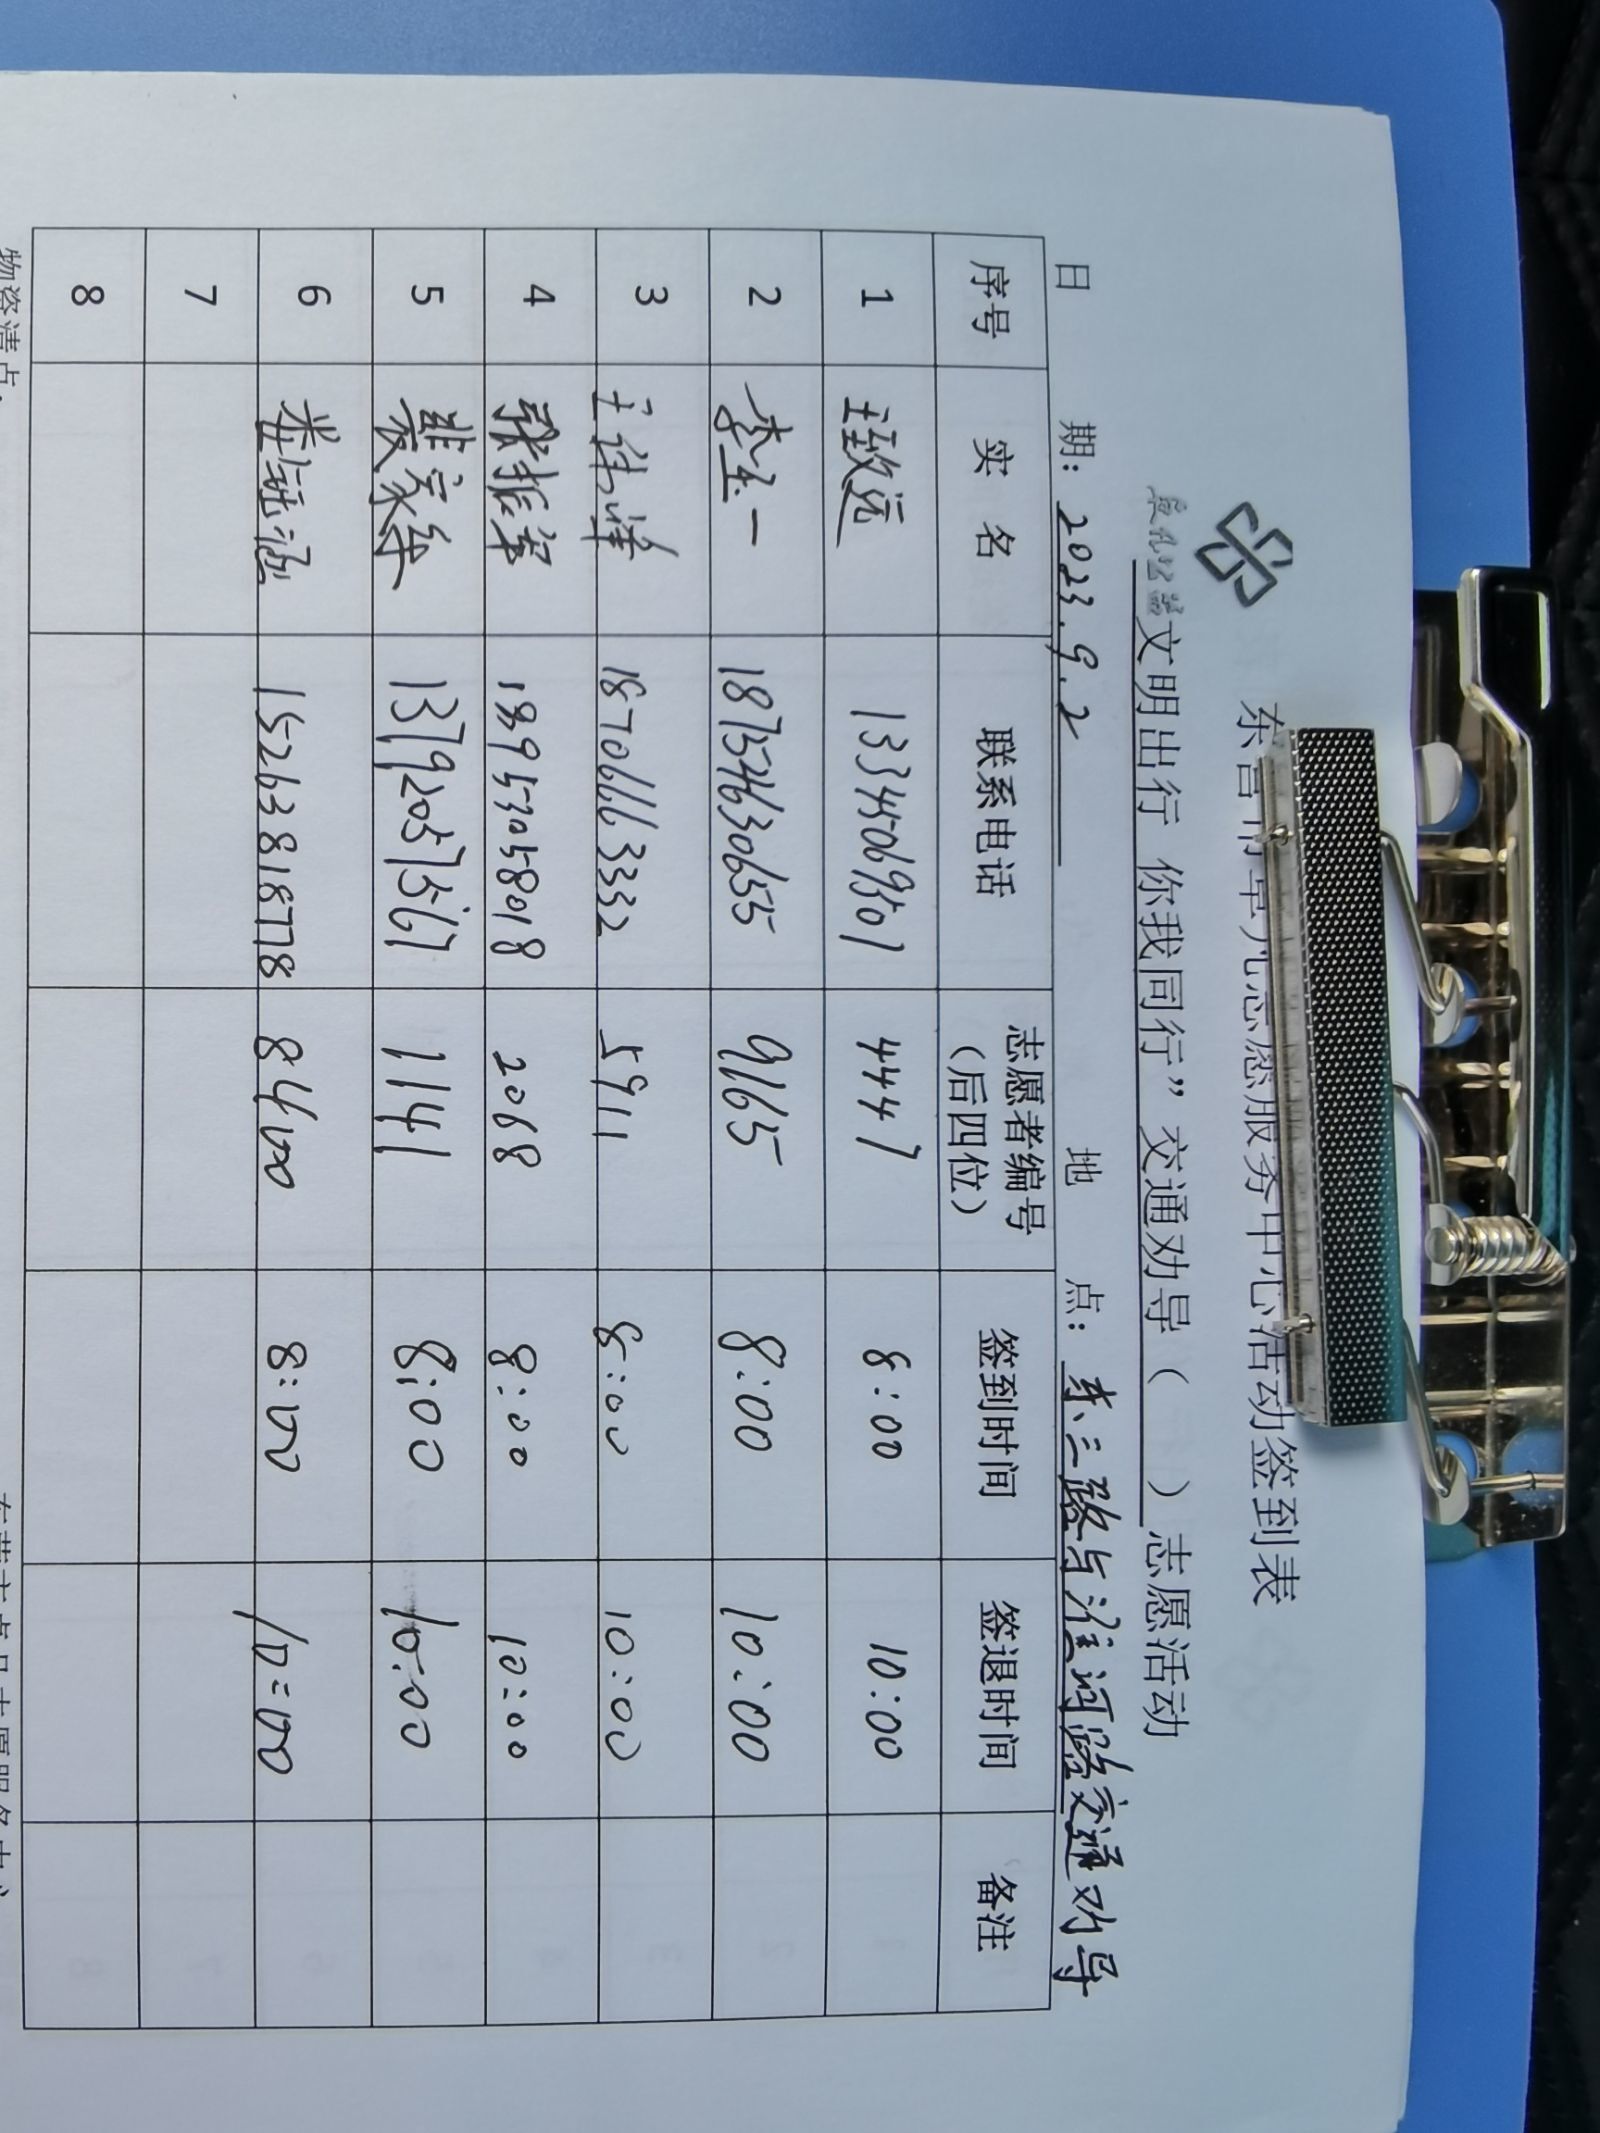 东营市卓凡志愿服务中心活动签到表
文明出行 你我同行”交通劝导（ ）志愿活动
日 期：2023.9.2 地 点：东三路与淮河路交通劝导
序号 实 名 联系电话 志愿者编号（后四位） 签到时间 签退时间 备注
1 王致远 13345069501 4447 8:00 10:00
2 李玉一 18754630655 9165 8:00 10:00
3 王伟峰 18706663332 5911 8:00 10:00
4 张振军 18953058018 2068 8:00 10:00
5 裴家年 13792057567 1141 8:00 10:00
6 15263818778 8400 8:00 10:00
7
8
物资清点：